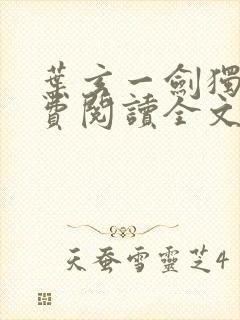 葉玄一劍獨
費閱讀全文
天蚕雪靈芝4